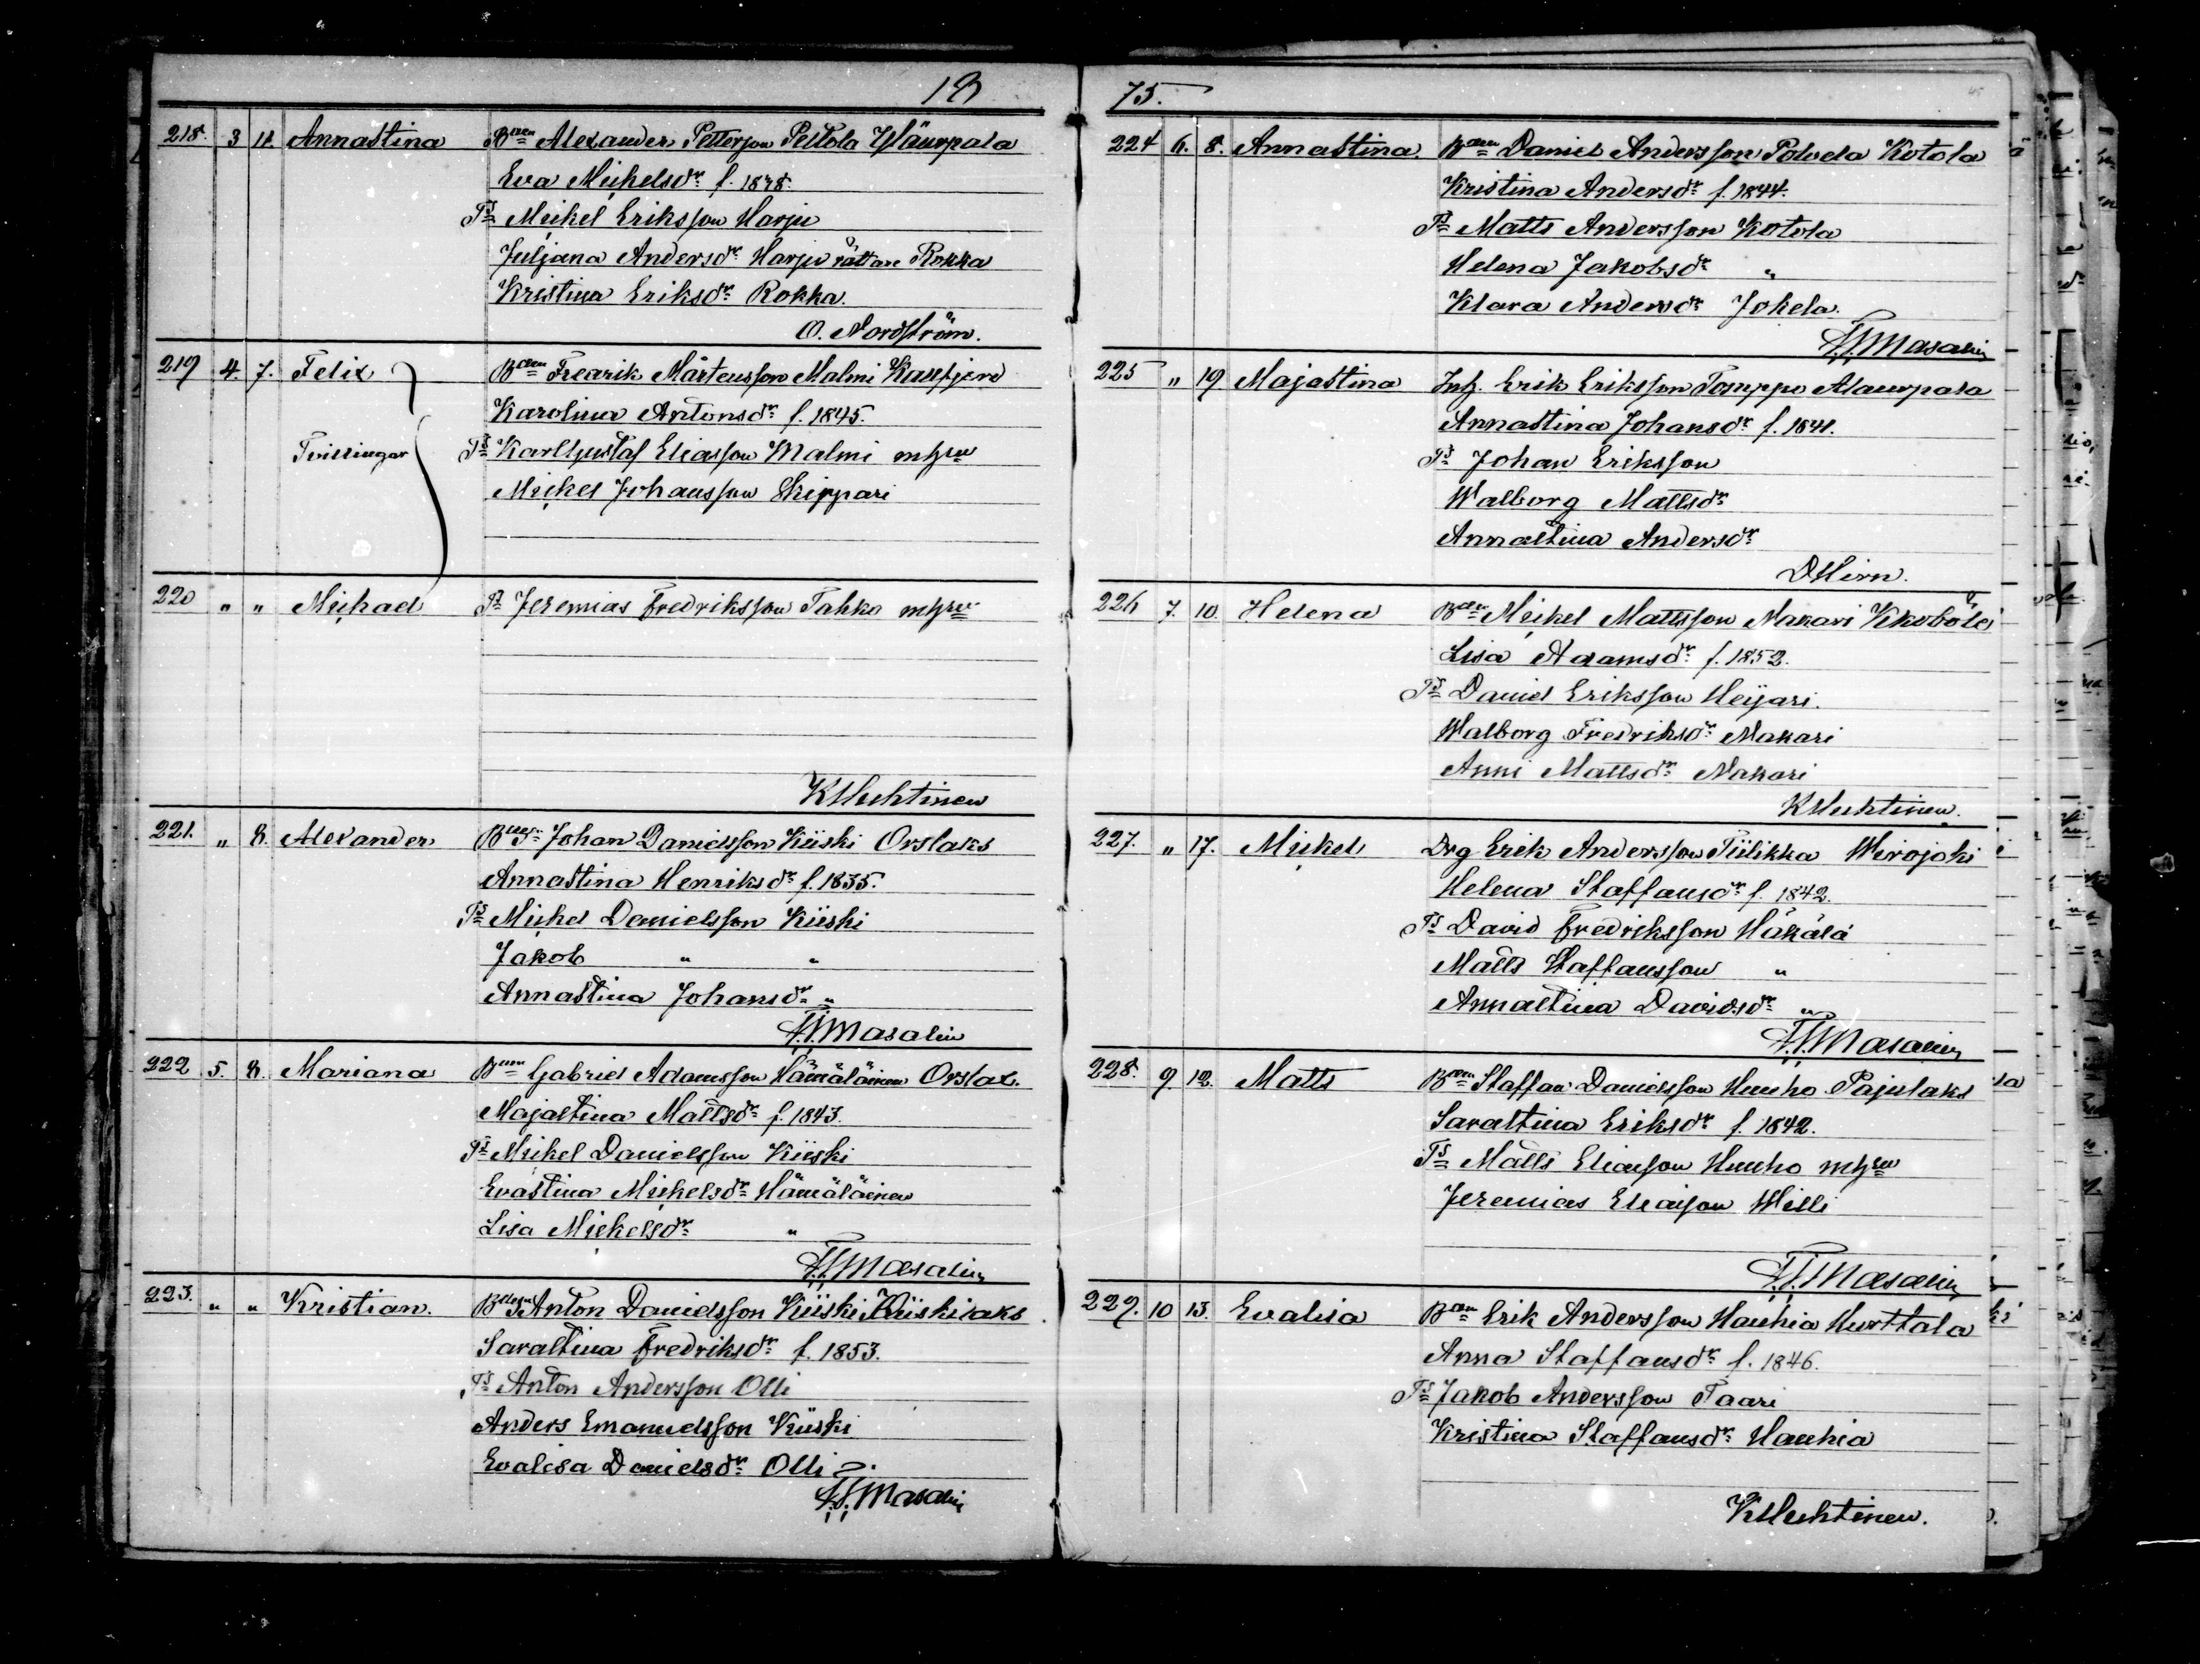 18
218. 3 12. Annastina Bonn Alexander Petterson Peltola Yläurpala
Eva Michelsdr f. 1848.
Ts Michel Eriksson Harju
Juljana Andersdr Harju rättare Rokka
Kristina Eriksdr Rokka.
O. Nordström.
219 4. 7. Felix Bonn Fredrik Mårtensson Malmi
Karolina Antonsdr f. 1845.
Tvillingar Ts Karl Gustaf Eliasson Malmi m hru
Michel Johansson Skippari
220 " " Michael Ts Jeremias Fredriksson Tahko m hru
K Huhtinen
221. " 8. Alexander Johan Danielsson Kiiski Orslaks
Annastina Henriksdr f. 1835.
Ts Michel Danielsson Kiiski
Jakob " "
Annastina Johansdr "
F.F. Masalin
222 5. 8. Mariana Bonn Gabriel Adamsson Hämäläinen Orslax.
Majastina Mattsdr f. 1843.
Ts Mickel Danielsson Kiiski
Evastina Mickelsdr Hämäläinen
Lisa Mickelsdr "
F.F. Masalin
223. " " Kristian. Anton Danielsson Kiiski Kiiskilaks
Sarastina Fredriksdr f. 1853.
Ts Anton Andersson Olli
Anders Emanuelsson Kiiski
Evalisa Danielsdr Olli
F.F. Masalin
75.
224 6. 8. Annastina. Bonn Daniel Andersson Polvela Kotola
Kristina Andersdr f. 1844.
Ts Matts Andersson Kotola
Helena Jakobsdr "
Klara Andersdr Jokela.
F.F. Masalin
225 " 19 Majastina Inh. Erik Eriksson Alaurpala
Annastina Johansdr f. 1841.
Ts Johan Eriksson
Walborg Mattsdr
Annastina Andersdr
D Hirn.
226 7. 10. Helena Bonn Mickel Mattsson Nakari
Lisa Adamsdr f. 1852.
Ts Daniel Eriksson Heijari.
Walborg Fredriksdr Nakari
Anni Mattsdr Nakari
K Huhtinen.
227. " 17. Mickel Drg Erik Andersson Tiilikka Wirojoki
Helena Staffansdr f. 1842.
Ts David Fredriksson Häkälä
Matts Staffansson "
Annastina Davidsdr "
F.F. Masalin
228. 9. 12. Matts Bonn Staffan Danielsson Huuho Pajulaks
Sarastina Eriksdr f. 1842.
Ts Matts Eliasson Huuho m hru
Jeremias Eliasson Willi
F.F. Masalin
229. 10 13. Evalisa Bonn Erik Andersson Hauhia Hurttala
Anna Staffansdr f. 1846.
Ts Jakob Andersson Taari
Kristina Staffansdr Hauhia
K Huhtinen.